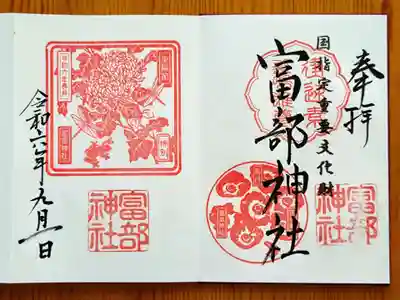 奉拝
国指定重要文化財
富部神社
富部
神社
令和六年九月一日
富部
神社